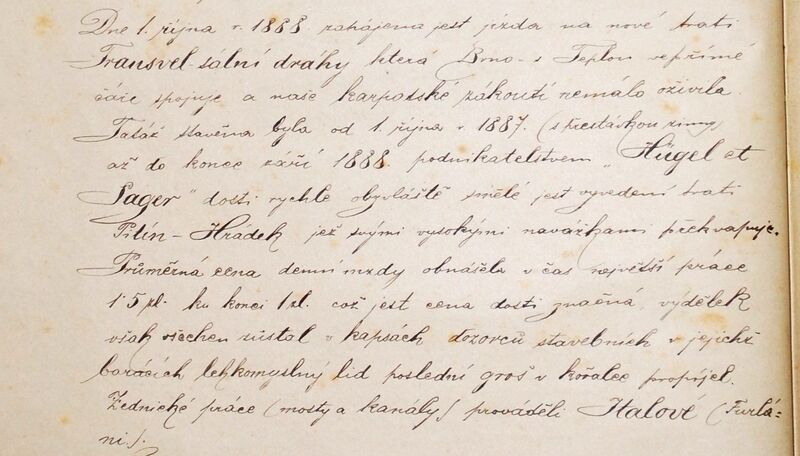 Dne 1. října r. 1888. zahájena jest jízda na nové trati
Transvel-sální dráhy která Brno - s Teplou v přímé
čáře spojuje a naše karpatské zákoutí nemálo oživila.
Tatáž stavěna byla od 1. října r 1887. (s přestávkou zimy)
až do konce září 1888. podnikatelstvem „Hügel et
Sager" dosti rychle obzvláště smělé jest vyvedení trati
Pitín - Hrádek jež svými vysokými navážkami překvapuje.
Průměrná cena denní mzdy obnášela v čas největší práce
1·5 zl. ku konci 1 zl. což jest cena dosti značná, výdělek
však všechen zůstal v kapsách dozorců stavebních v jejichž
barácích lehkomyslný lid poslední groš v kořalce propíjel.
Zednické práce (mosty a kanály) prováděli Italové (Furlá-
ni).